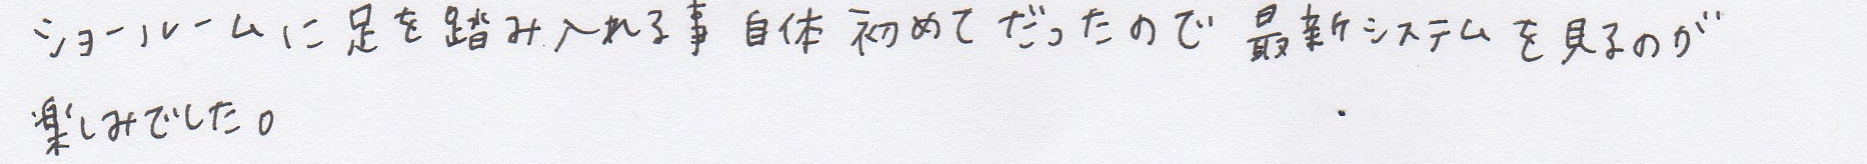 ショールームに足を踏み入れる事自体初めてだったので最新システムを見るのが
楽しみでした。